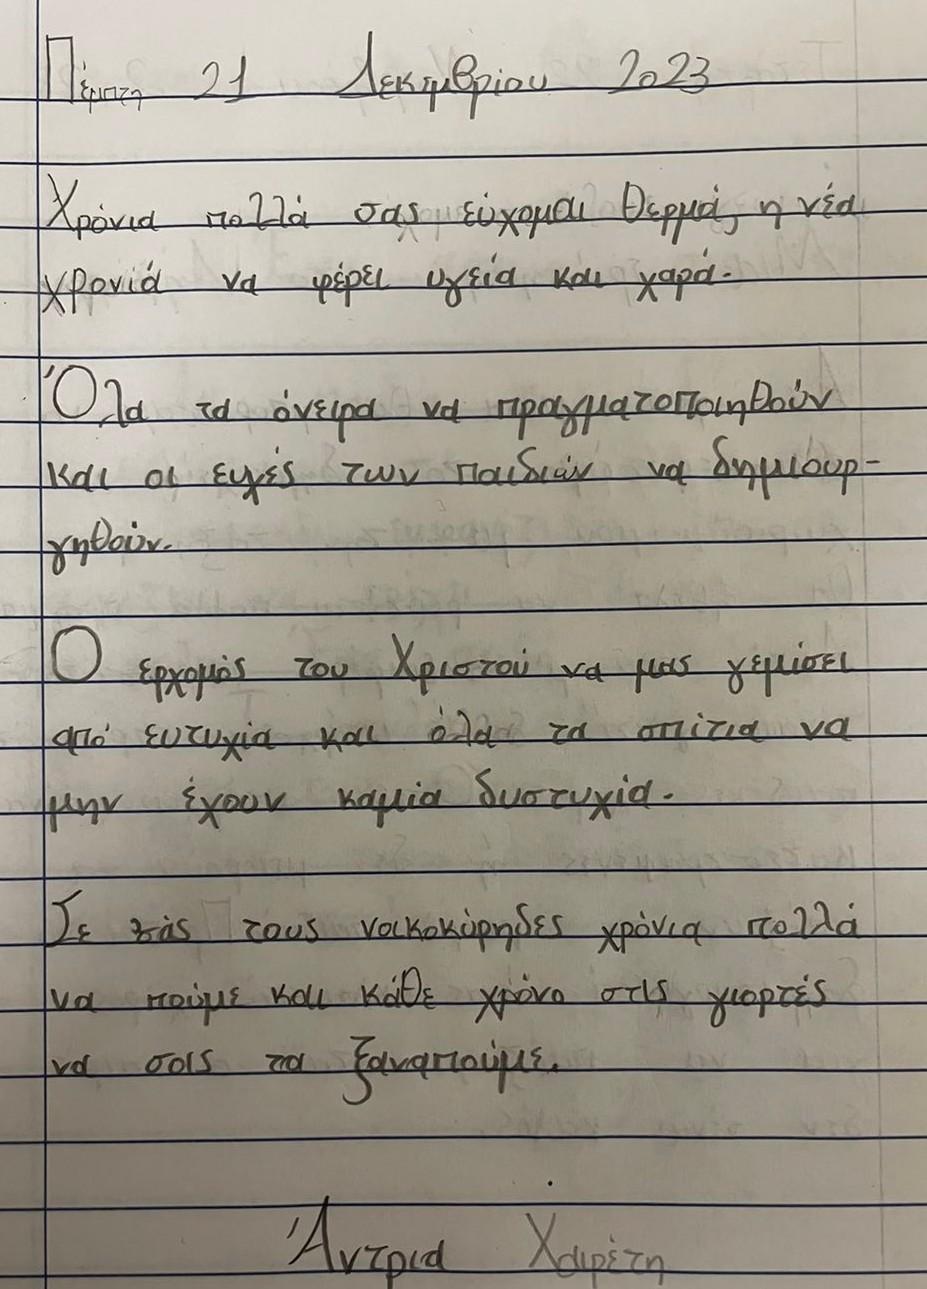 Πέμπτη 21 Δεκεμβρίου 2023
Χρόνια πολλά σας εύχομαι θερμά, η νέα
χρονιά να φέρει υγεία και χαρά.
Όλα τα όνειρα να πραγματοποιηθούν
και οι ευχές των παιδιών να δημιουρ-
γηθούν.
Ο ερχομός του Χριστού να μας γεμίσει
από ευτυχία και όλα τα σπίτια να
μην έχουν καμία δυστυχία.
Σε σάς τους νοικοκύρηδες χρόνια πολλά
να πούμε και κάθε χρόνο στις γιορτές
να σας τα ξαναπούμε.
Άντρια Χαιρέτη